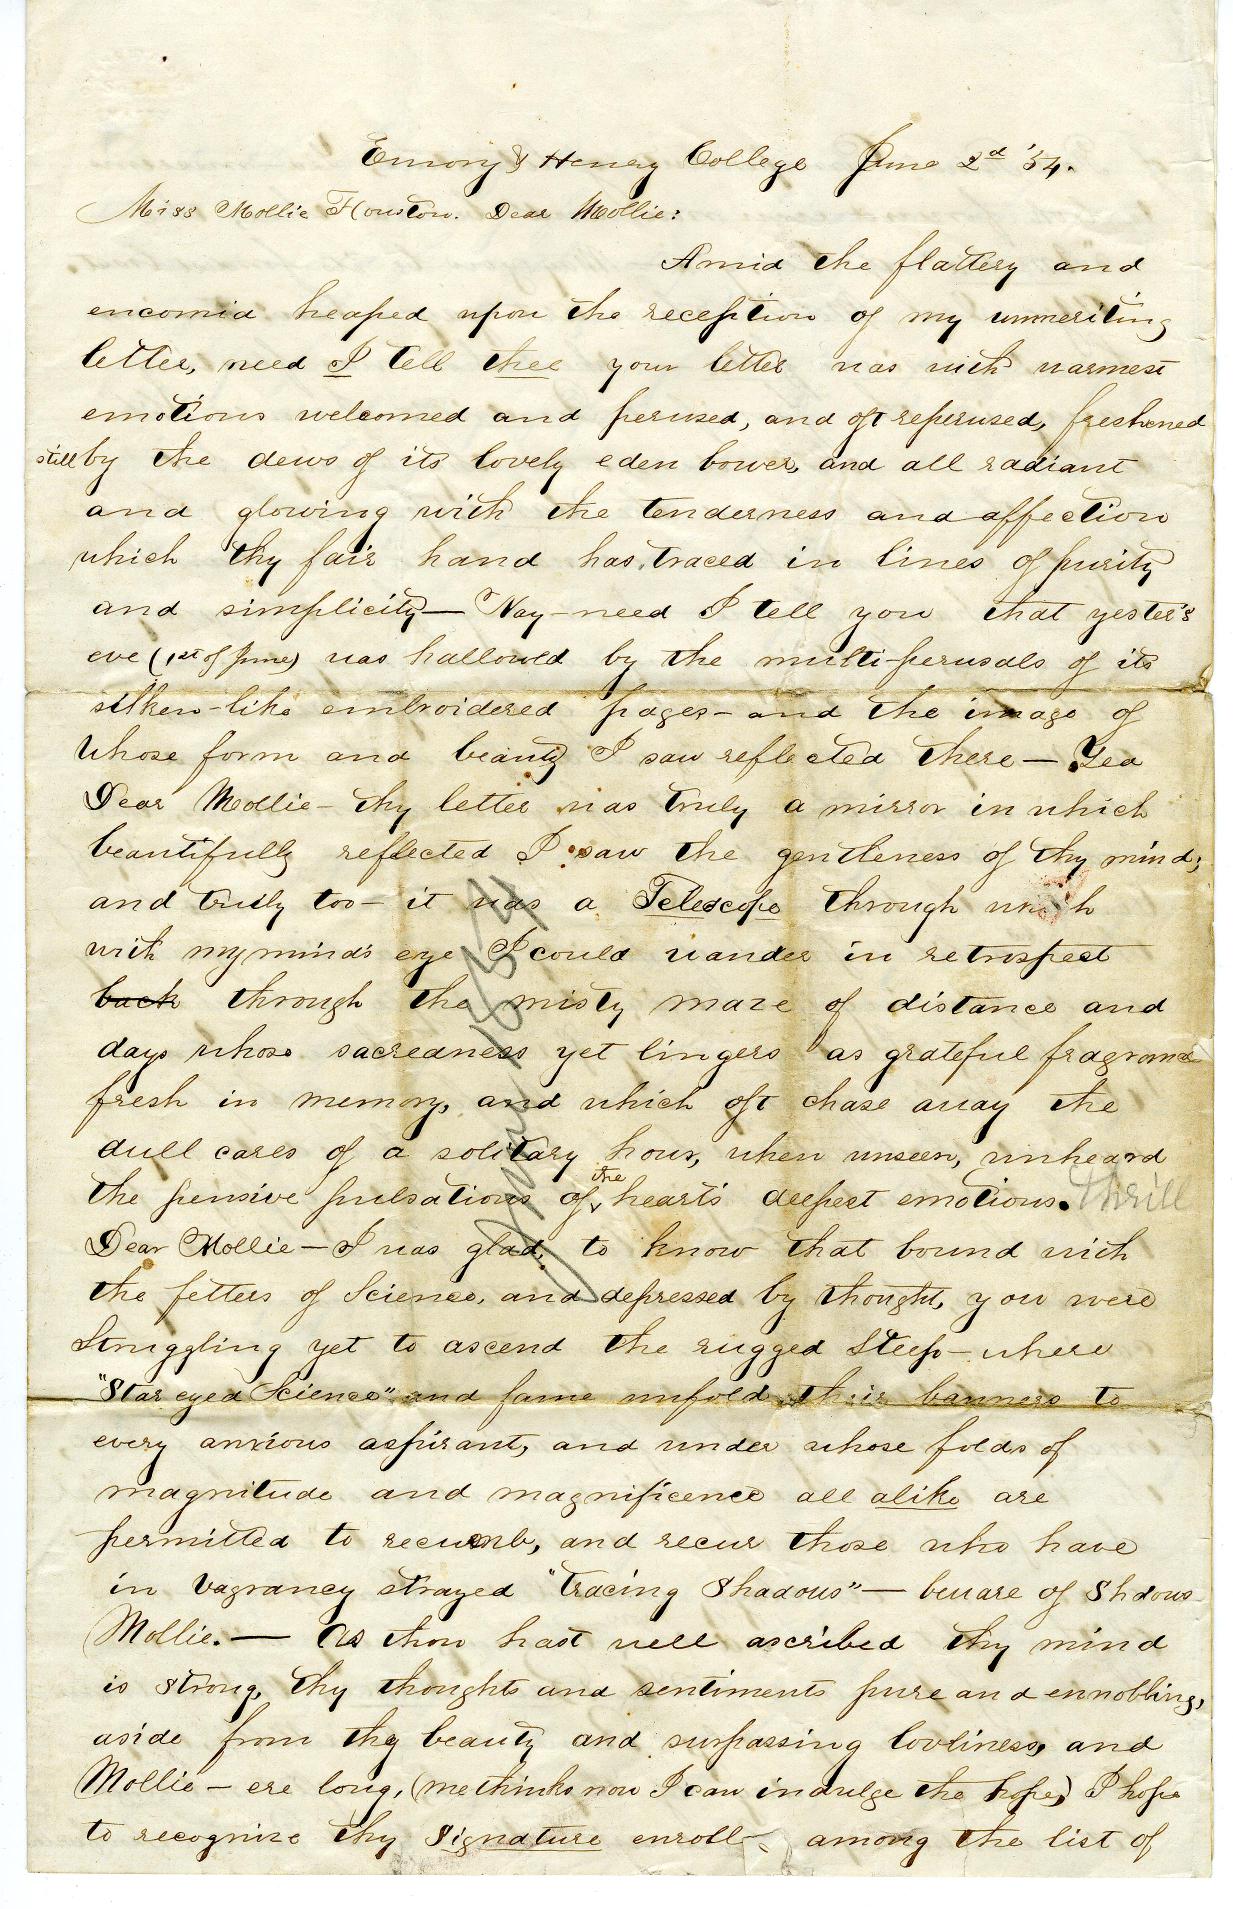 Emory & Henry College June 2d '54.
Miss Mollie Houston. Dear Mollie:
Amid the flattery and
encomia heaped upon the reception of my unmeriting
letter, need I tell thee your letter was with warmest
emotions welcomed and perused, and oft reperused, freshened
still by the dews of its lovely eden bower, and all radiant
and glowing with the tenderness and affection
which thy fair hand has traced in lines of purity
and simplicity — Nay - need I tell you that yester's
eve (1st of June) was hallowed by the multi-perusals of its
silken-like embroidered pages - and the image of
whose form and beauty I saw reflected there — Yea
Dear Mollie - thy letter was truly a mirror in which
beautifully reflected I saw the gentleness of thy mind;
and truly too - it was a Telescope through which
with my mind's eye I could wander in retrospect
back through the misty maze of distance and
days whose sacredness yet lingers as grateful fragrance
fresh in memory, and which oft chase away the
dull cares of a solitary hour, when unseen, unheard
the pensive pulsations of the heart's deepest emotions. thrill
Dear Mollie — I was glad, to know that bound with
the fetters of Science, and depressed by thought, you were
Struggling yet to ascend the rugged Steep - where
"Star eyed Science" and fame unfold their banners to
every anxious aspirant, and under whose folds of
magnitude and magnificence all alike are
permitted to recumb, and recur those who have
in vagrancy strayed "tracing Shadows" — beware of Shdows
Mollie. — As thou hast well ascribed thy mind
is strong, thy thoughts and sentiments pure and ennobling,
aside from thy beauty and surpassing lovliness, and
Mollie - ere long, (methinks now I can indulge the hope,) I hope
to recognize thy Signature enroll among the list of
June 1854